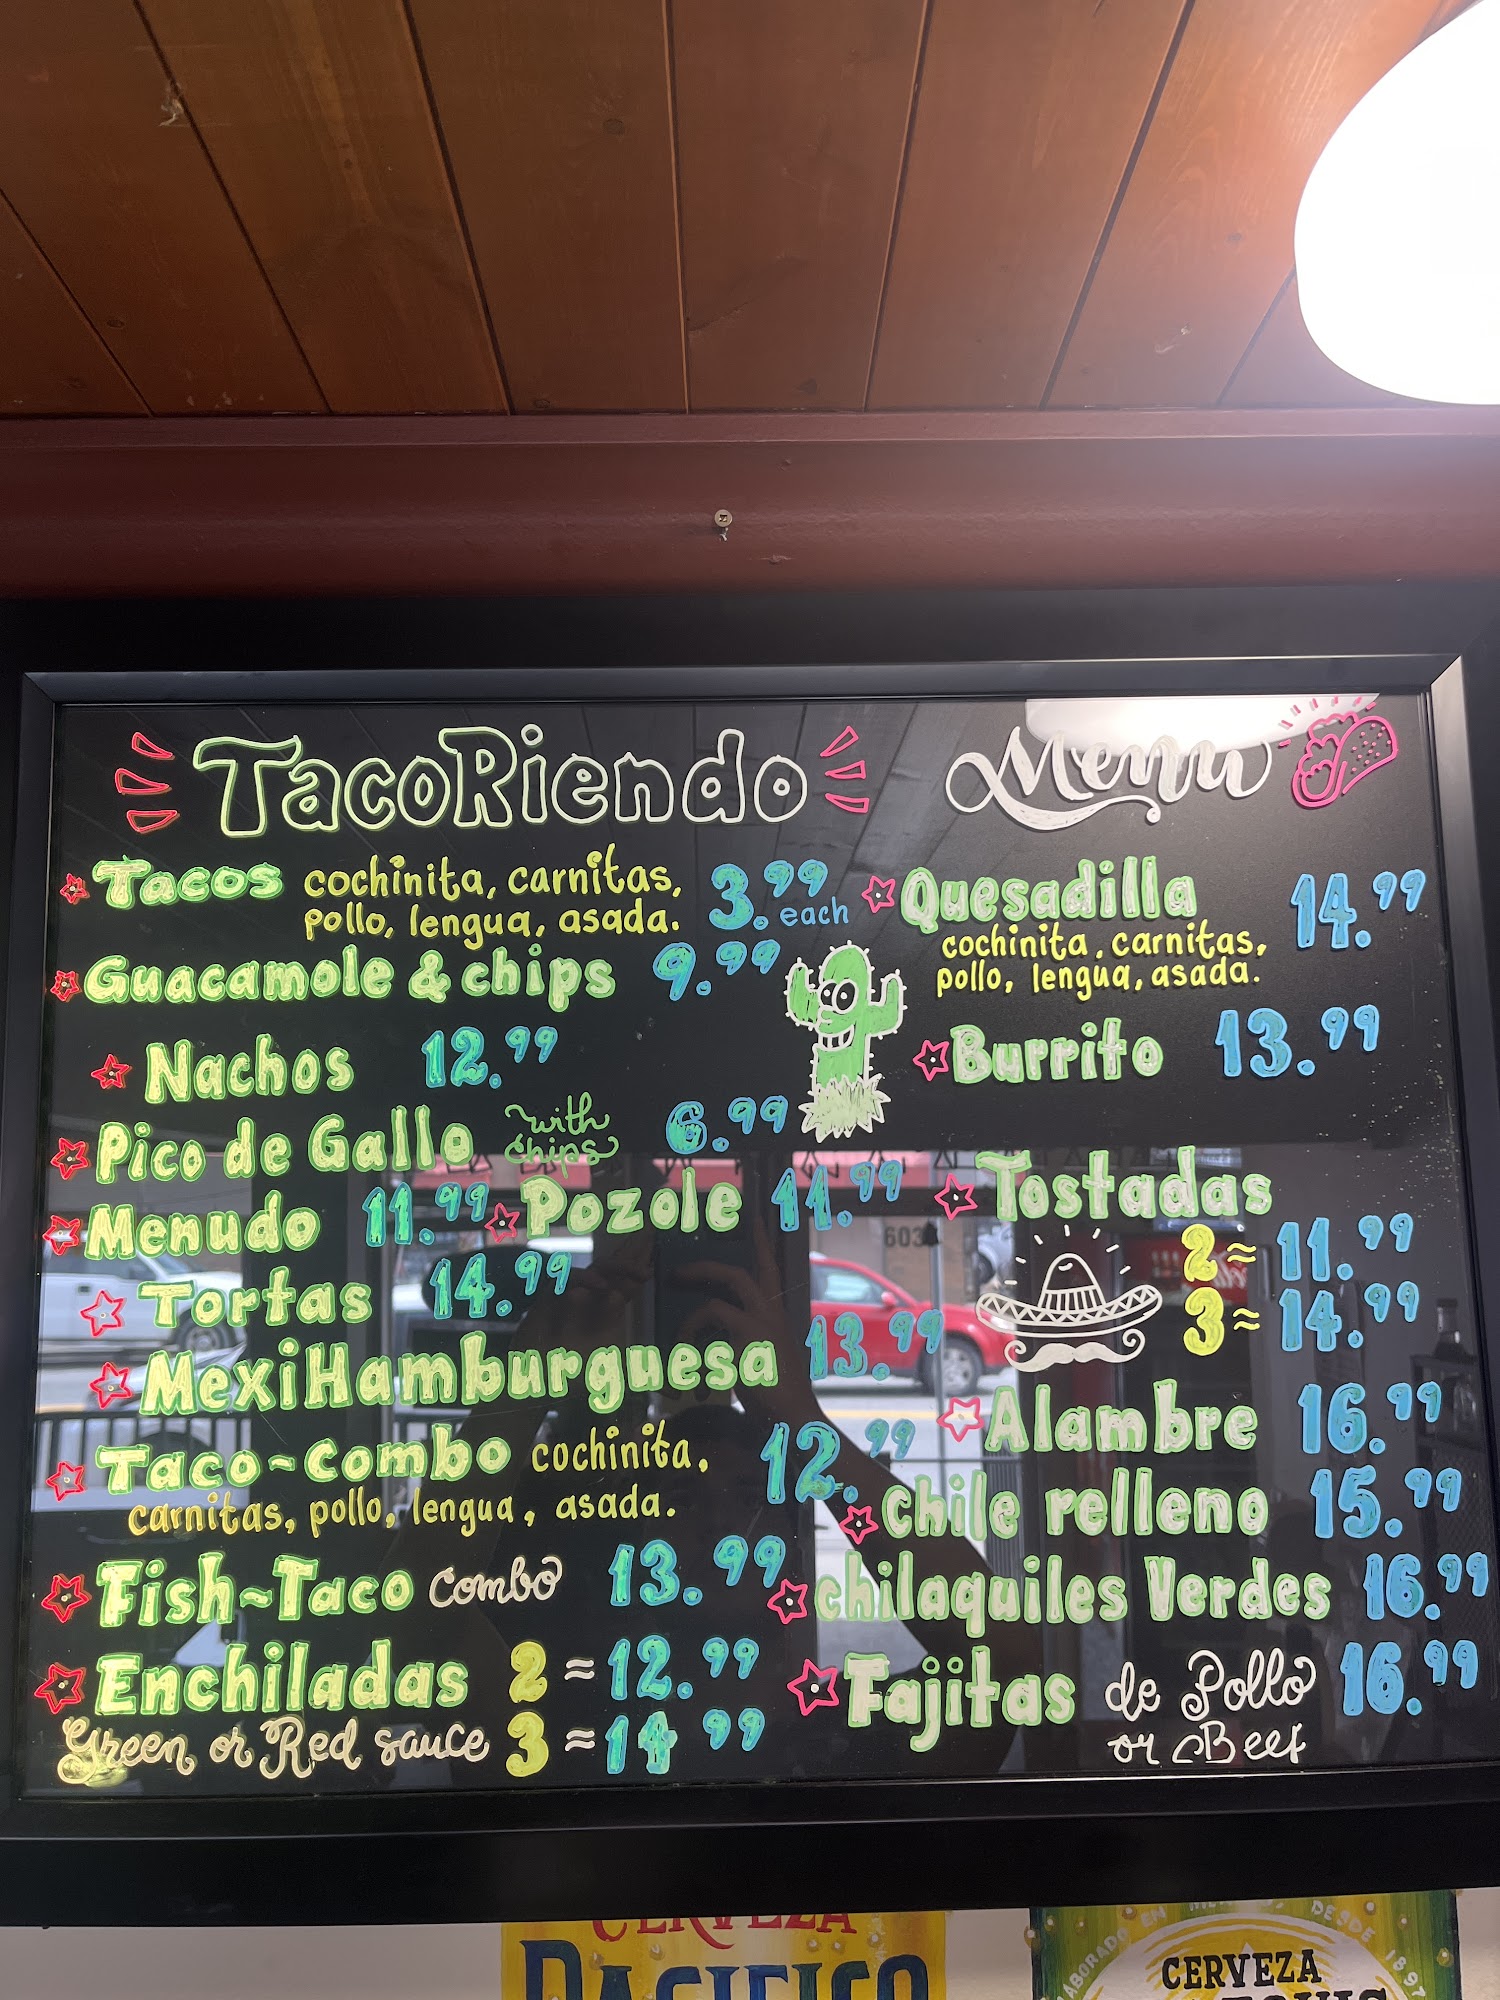 TacoRiendo Menu
Tacos cochinita, carnitas, 3.99
pollo, lengua, asada. each
Guacamole & chips 9.99
Nachos 12.99
Pico de Gallo with chips 6.99
Menudo 11.99 Pozole 11.99
Tortas 14.99
MexiHamburguesa 13.99
Taco~Combo cochinita, 12.99
carnitas, pollo, lengua, asada.
Fish~Taco Combo 13.99
Enchiladas 2 = 12.99
Green or Red sauce 3 = 14 99
Quesadilla 14.99
cochinita, carnitas,
pollo, lengua, asada.
Burrito 13.99
Tostadas
2 = 11.99
3 = 14.99
Alambre 16.99
chile relleno 15.99
chilaquiles Verdes 16.99
Fajitas de Pollo 16.99
or Beef
603
CERVEZA
PACIFICO
ELABORADO EN DESDE 1897
CERVEZA